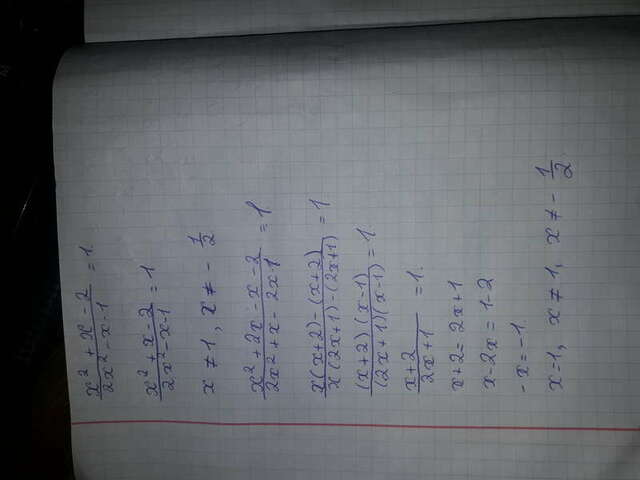 x² + x - 2 / 2x² - x - 1 = 1.
x² + x - 2 / 2x² - x - 1 = 1
x ≠ 1, x ≠ - 1/2
x² + 2x - x - 2 / 2x² + x - 2x 1 = 1.
x(x+2) - (x+2) / x(2x+1) - (2x+1) = 1
(x+2)(x-1) / (2x+1)(x-1) = 1.
x+2 / 2x+1 = 1.
x+2 = 2x+1
x-2x = 1-2
-x = -1.
x=1, x ≠ 1, x ≠ - 1/2